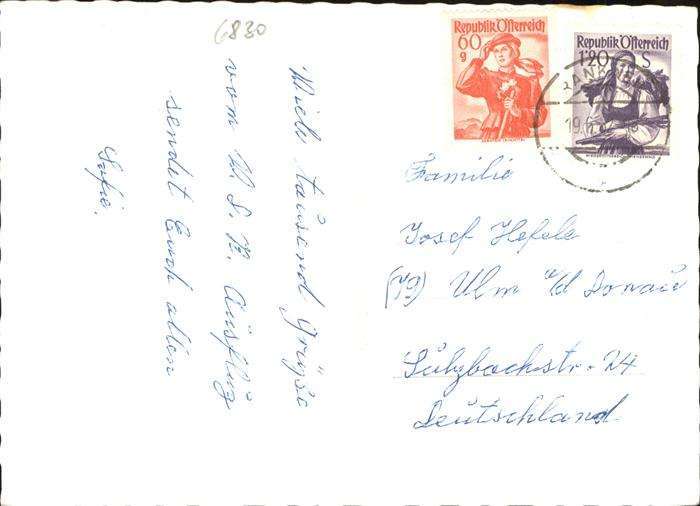 6830
Viele tausend Grüße
vom W. S. K. Ausflug
sendet Euch allen
Sofie.
Republik Österreich
60
g
Republik Österreich
1'20 S
RANKWEIL
19.
Familie
Josef Hefele
Ulm a/d Donau
Sülzbachstr. 24
Deutschland.